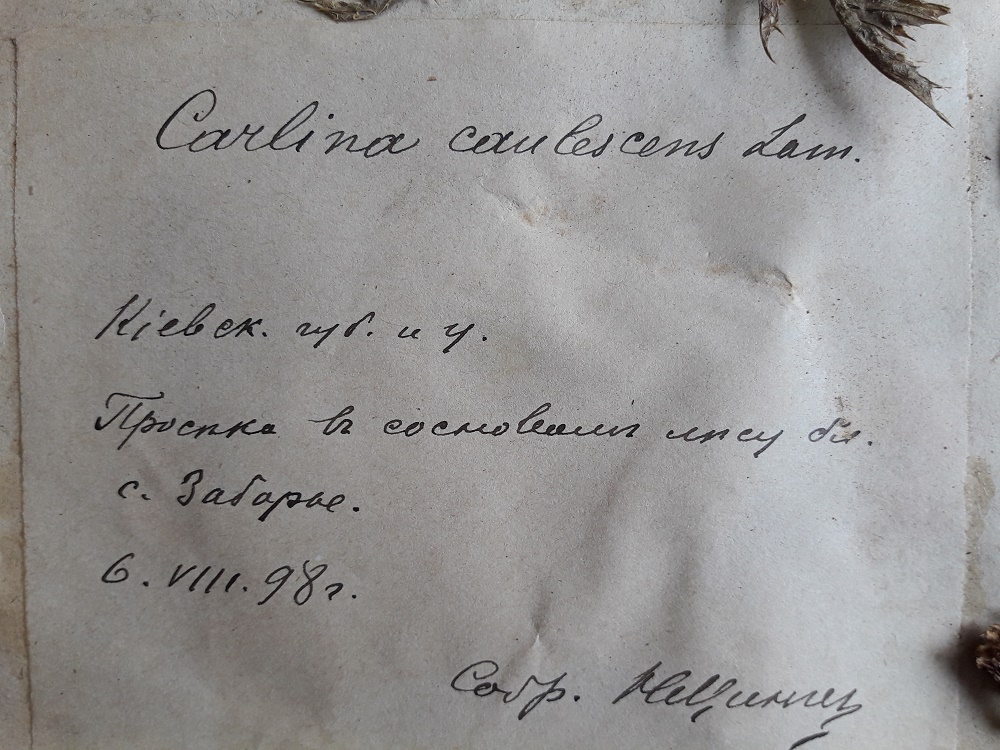 Carlina caulescens Lam.
Кіевск. губ. и у.
Просѣка въ сосновомъ лѣсу бл.
с. Заборье.
6. VIII. 98 г.
Собр.